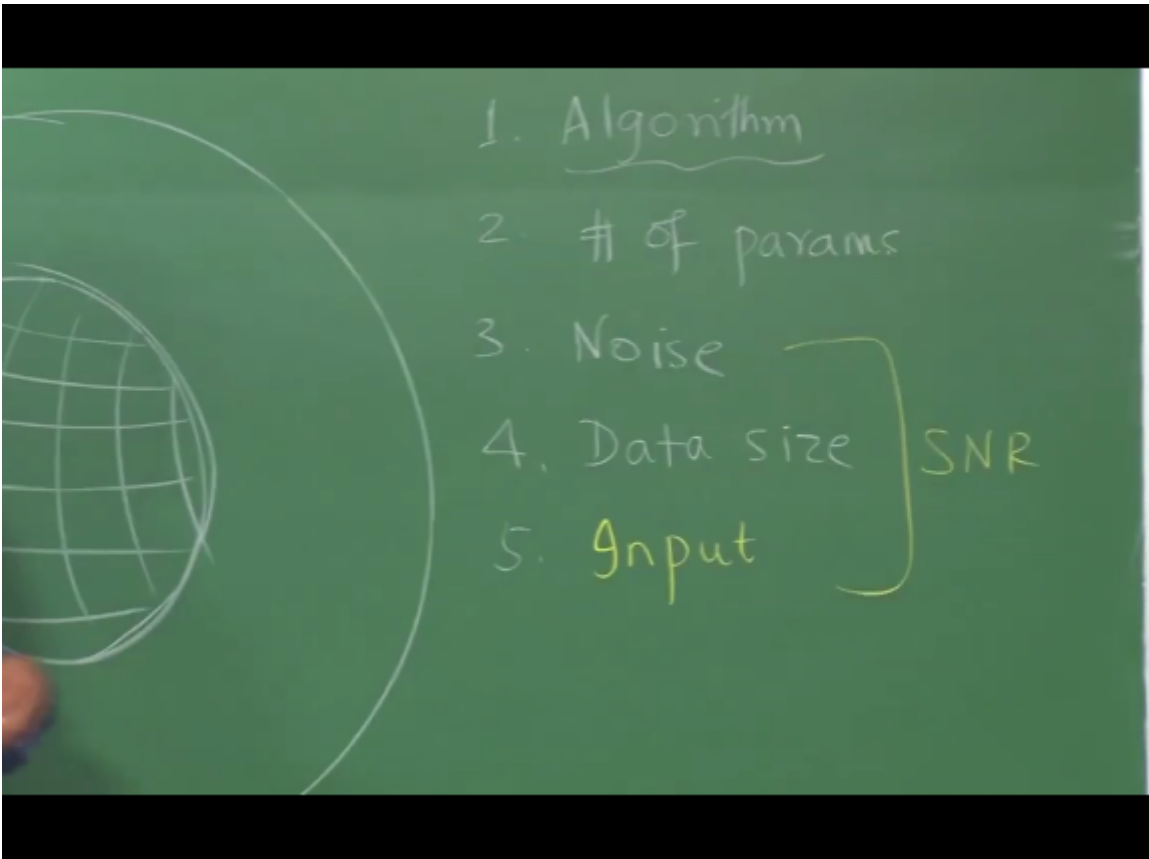 1. Algorithm
2. # of params
3. Noise
4. Data size
SNR
5. Input